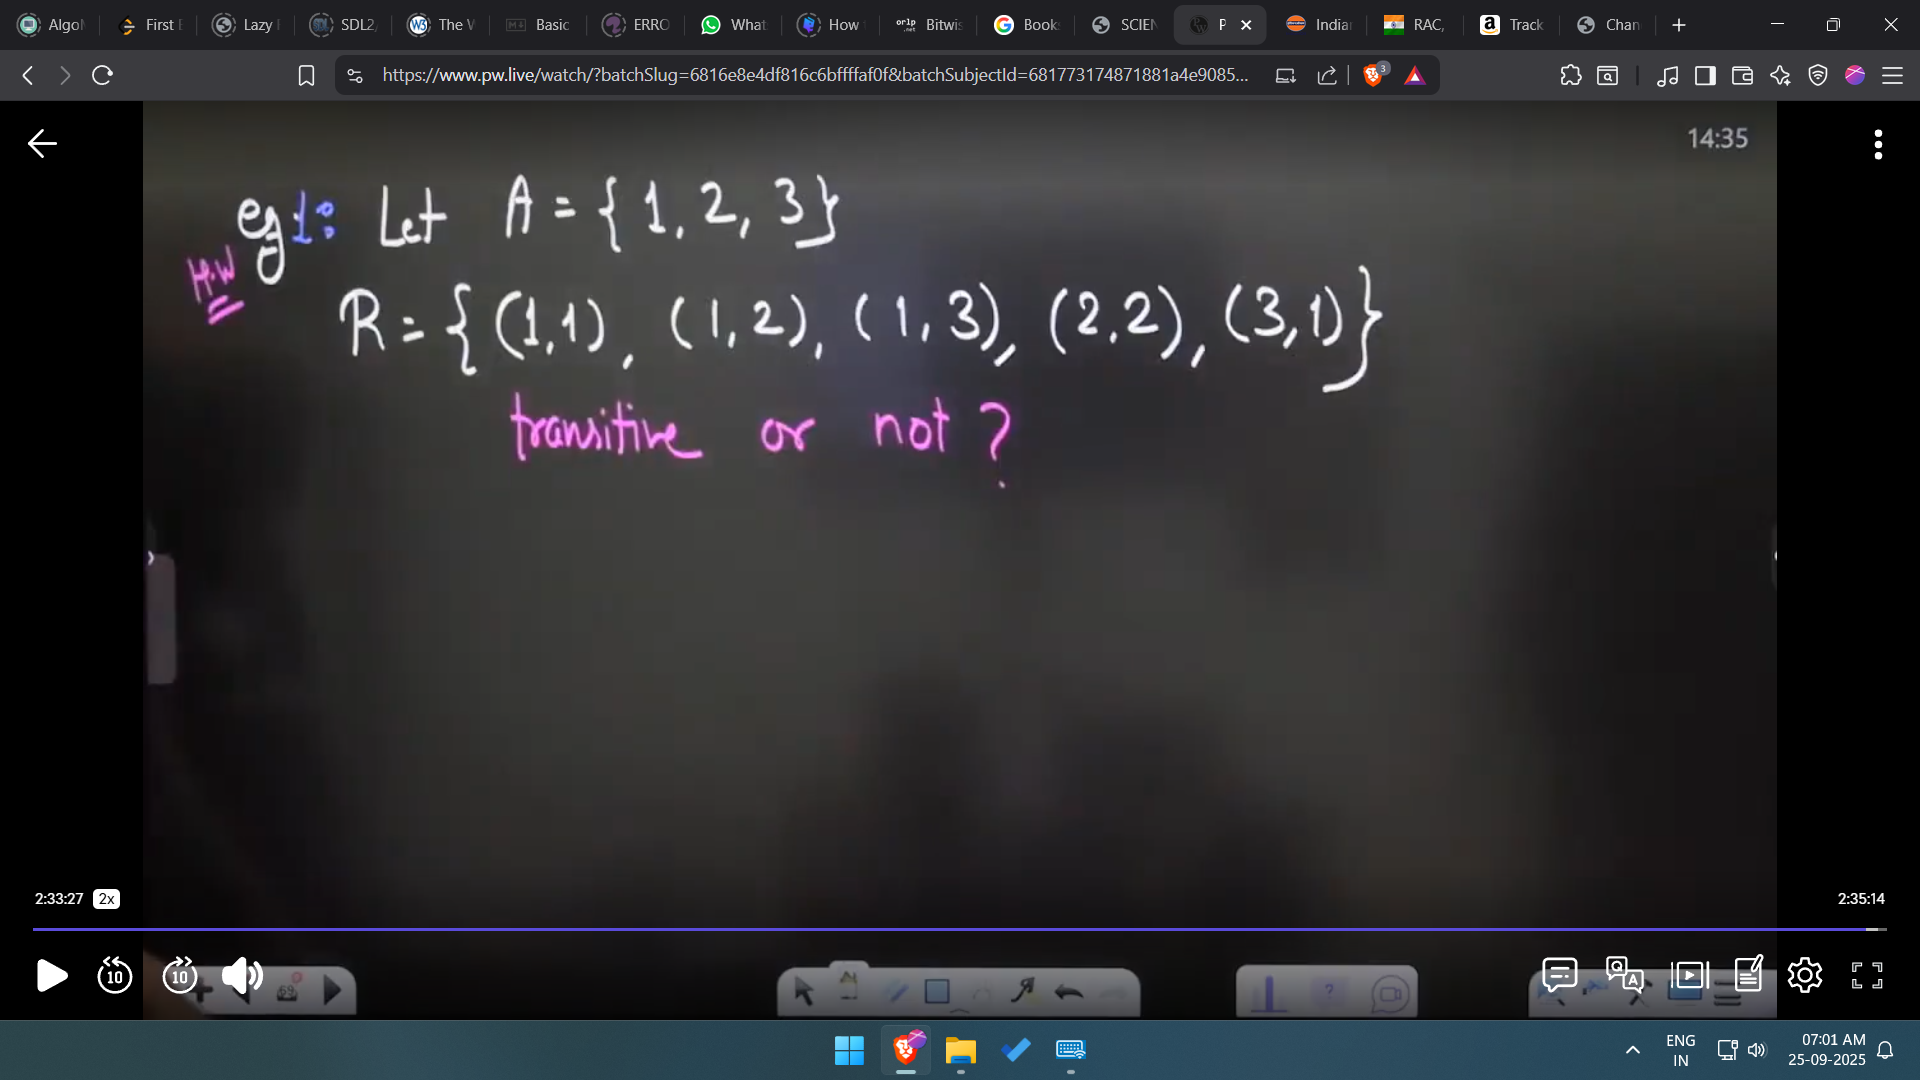 Algo
First
Lazy
SDL2,
The
Basic
ERRO
What
How
orlp .net Bitwis
Book
SCIEN
P
India
RAC,
Track
Chan
https://www.pw.live/watch/?batchSlug=6816e8e4df816c6bffffaf0f&batchSubjectId=681773174871881a4e9085...
3
14:35
eg1: Let A = { 1, 2, 3 }
H.W
R = { (1,1), (1,2), (1,3), (2,2), (3,1) }
transitive or not ?
2:33:27 2x
2:35:14
10 10
69
?
ENG
IN
07:01 AM
25-09-2025